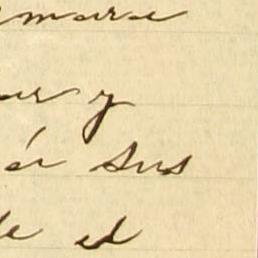 mara
ar y
ór sus
de el